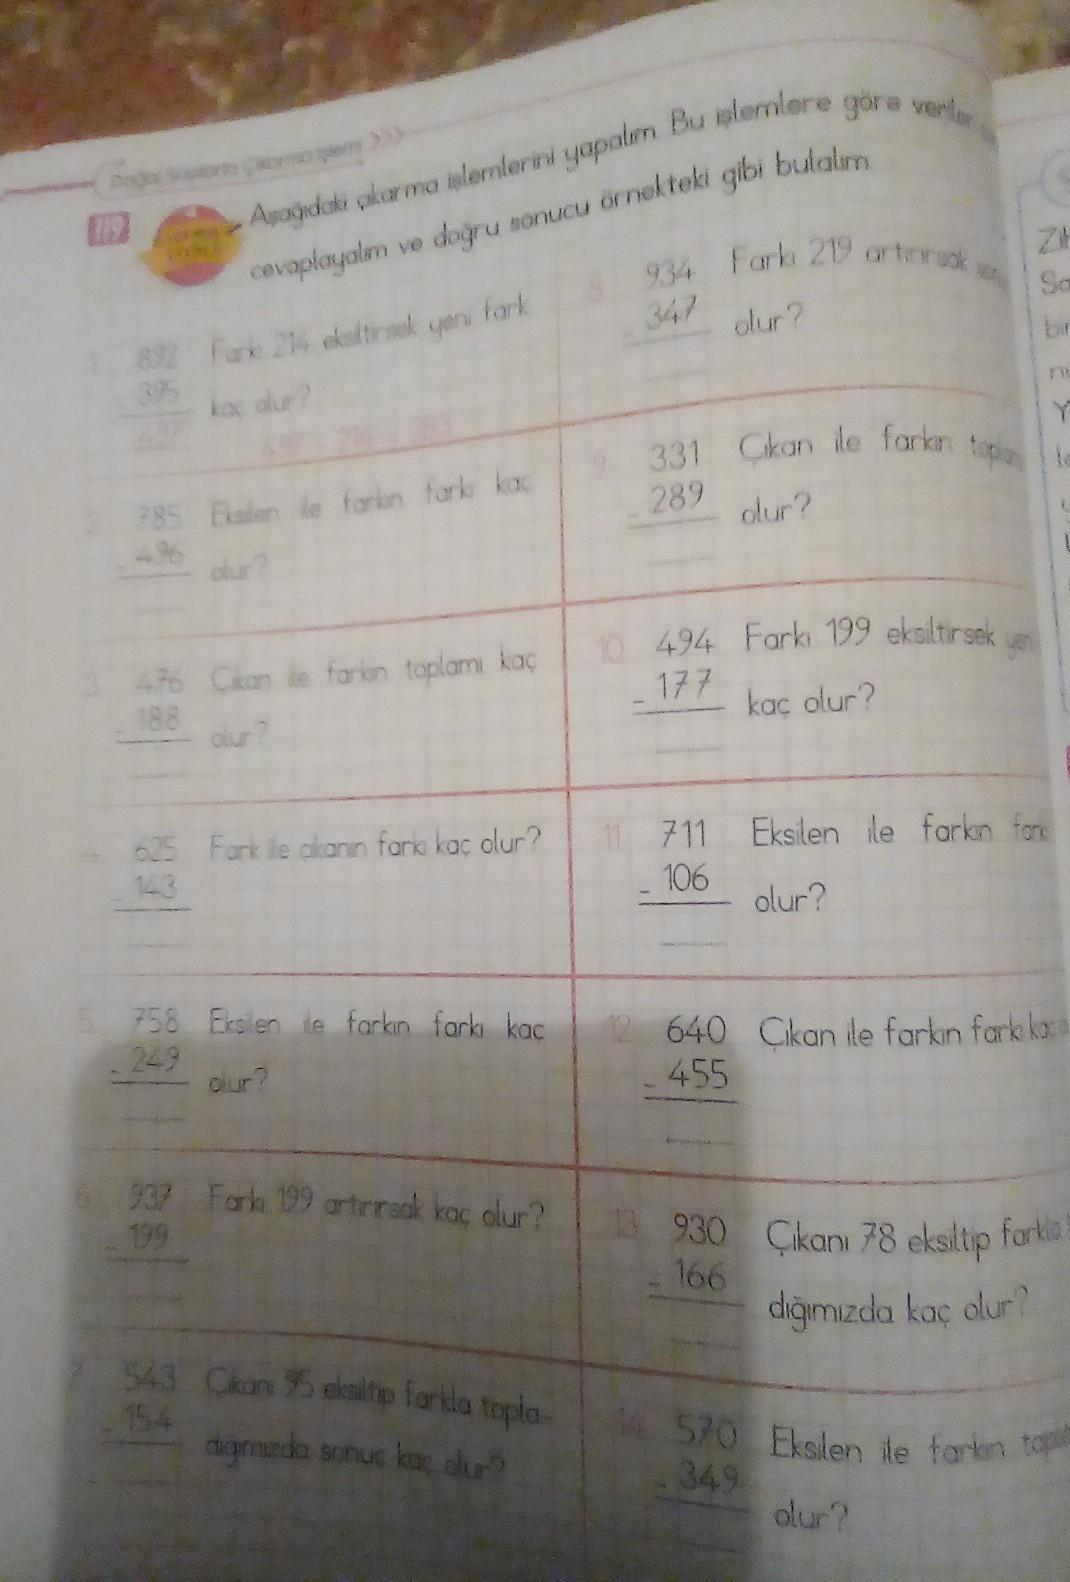 Doğal Sayılarla Çıkarma İşlemi >>>
119
Aşağıdaki çıkarma işlemlerini yapalım. Bu işlemlere göre
cevaplayalım ve doğru sonucu örnekteki gibi bulalım.
1. 892 Farkı 214 eksiltirsek yeni fark
- 395 kaç olur?
497 497 - 214 = 283
2. 785 Eksilen ile farkın farkı kaç
- 496 olur?
3. 476 Çıkan ile farkın toplamı kaç
- 188 olur?
4. 625 Fark ile çıkanın farkı kaç olur?
- 143
5. 758 Eksilen ile farkın farkı kaç
- 249 olur?
6. 937 Farkı 199 artırırsak kaç olur?
- 199
7. 543 Çıkanı 95 eksiltip farkla topla-
- 154 dığımızda sonuç kaç olur?
8. 934 Farkı 219 artırırsak
- 347 olur?
9. 331 Çıkan ile farkın
- 289 olur?
10. 494 Farkı 199 eksiltirsek
- 177 kaç olur?
11. 711 Eksilen ile farkın
- 106 olur?
12. 640 Çıkan ile farkın farkı
- 455
13. 930 Çıkanı 78 eksiltip farkla
- 166 dığımızda kaç olur?
14. 570 Eksilen ile farkın
- 349 olur?